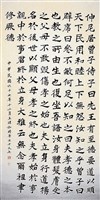 仲尼居曾子侍子曰先王有至德要道以順
天下民用和睦上下無怨汝知之乎曾子
避席曰參不敏何足以知之子曰夫孝德
之本也教之所由生也復坐吾語汝身體
髮膚受之父母不敢毀傷孝之始也立身行道揚
名於後世以顯父母孝之終也夫孝始於事親中
於事君終於立身大雅云無念爾祖聿
修厥德
中華民國